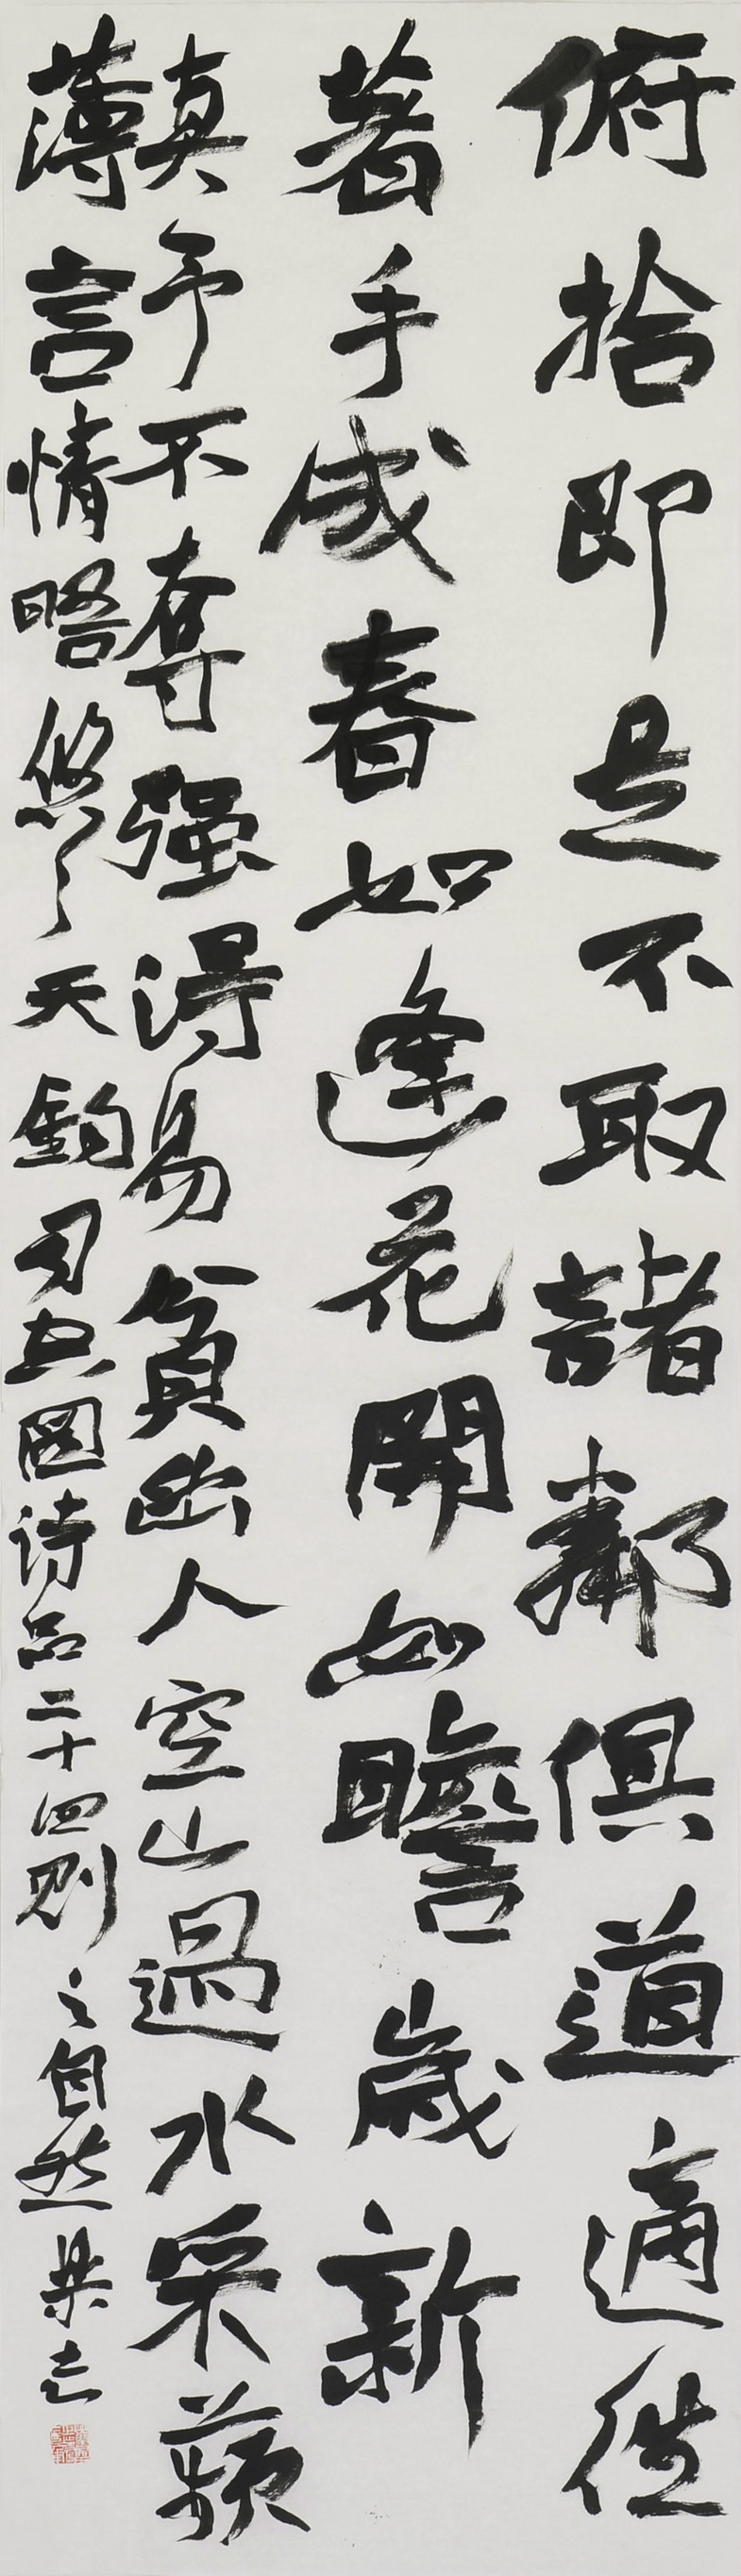 俯拾即是不取諸鄰俱道適往
著手成春如逢花開如瞻歲新
真予不奪强得易貧幽人空山過水采蘋
薄言情晤悠々天鈞司空圖诗品二十四则之自然